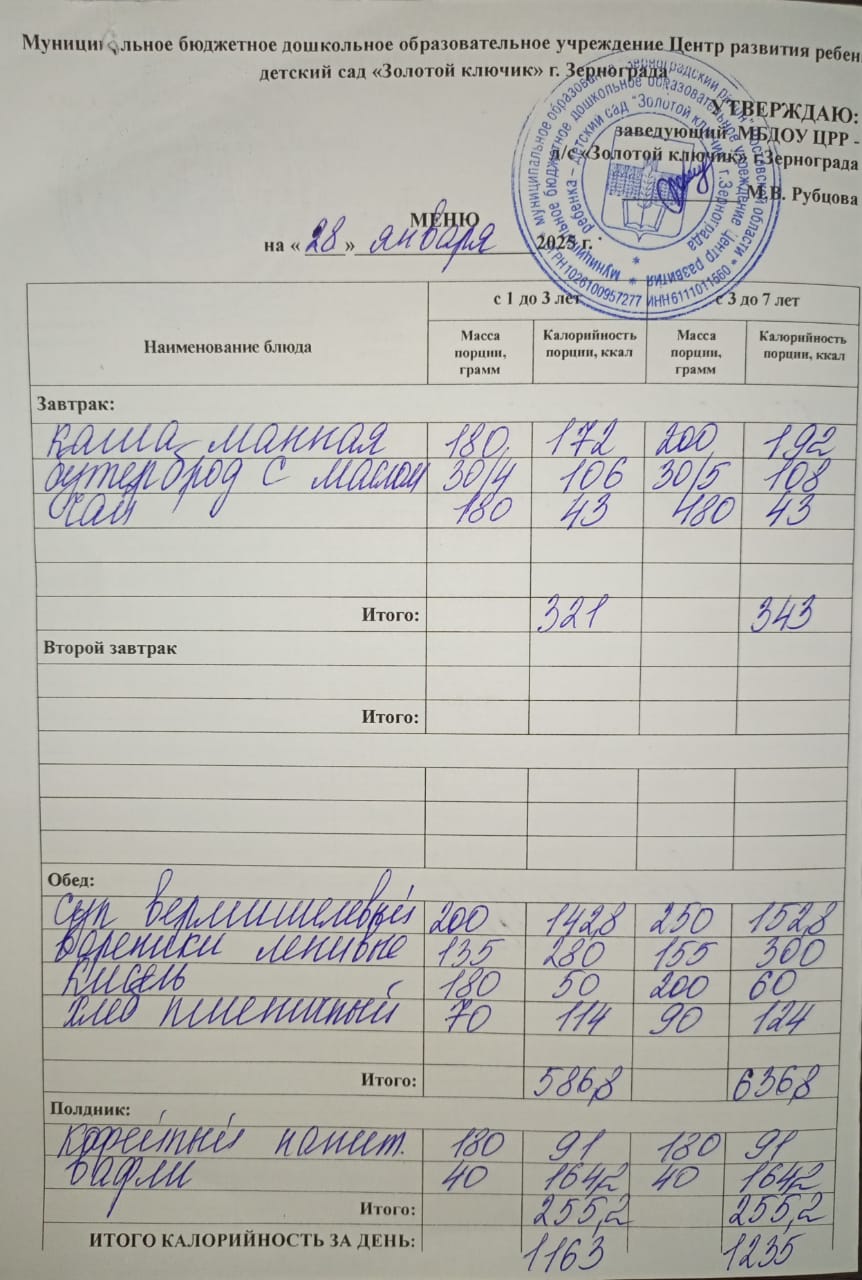 Муниципальное бюджетное дошкольное образовательное учреждение Центр развития ребен
детский сад «Золотой ключик» г. Зернограда
УТВЕРЖДАЮ:
заведующий МБДОУ ЦРР -
д/с «Золотой ключик» г.Зернограда
М.В. Рубцова
МЕНЮ
на « 28 » января 2025 г.
муниципальное образование "Зерноградский район" Ростовской области
муниципальное бюджетное дошкольное образовательное учреждение Центр развития
ребенка – детский сад "Золотой ключик" г.Зернограда
ОГРН 1026100957277 ИНН 6111011560
Наименование блюда с 1 до 3 лет с 3 до 7 лет
Масса порции, грамм Калорийность порции, ккал Масса порции, грамм Калорийность порции, ккал
Завтрак:
каша манная 180 172 200 192
бутерброд с маслом 30/4 106 30/5 108
чай 180 43 180 43
Итого: 321 343
Второй завтрак
Итого:
Обед:
суп вермишелевый 200 142,8 250 152,8
вареники ленивые 135 280 155 300
кисель 180 50 200 60
хлеб пшеничный 70 114 90 124
Итого: 586,8 636,8
Полдник:
кофейный напит. 180 91 180 91
вафли 40 164,2 40 164,2
Итого: 255,2 255,2
ИТОГО КАЛОРИЙНОСТЬ ЗА ДЕНЬ: 1163 1235